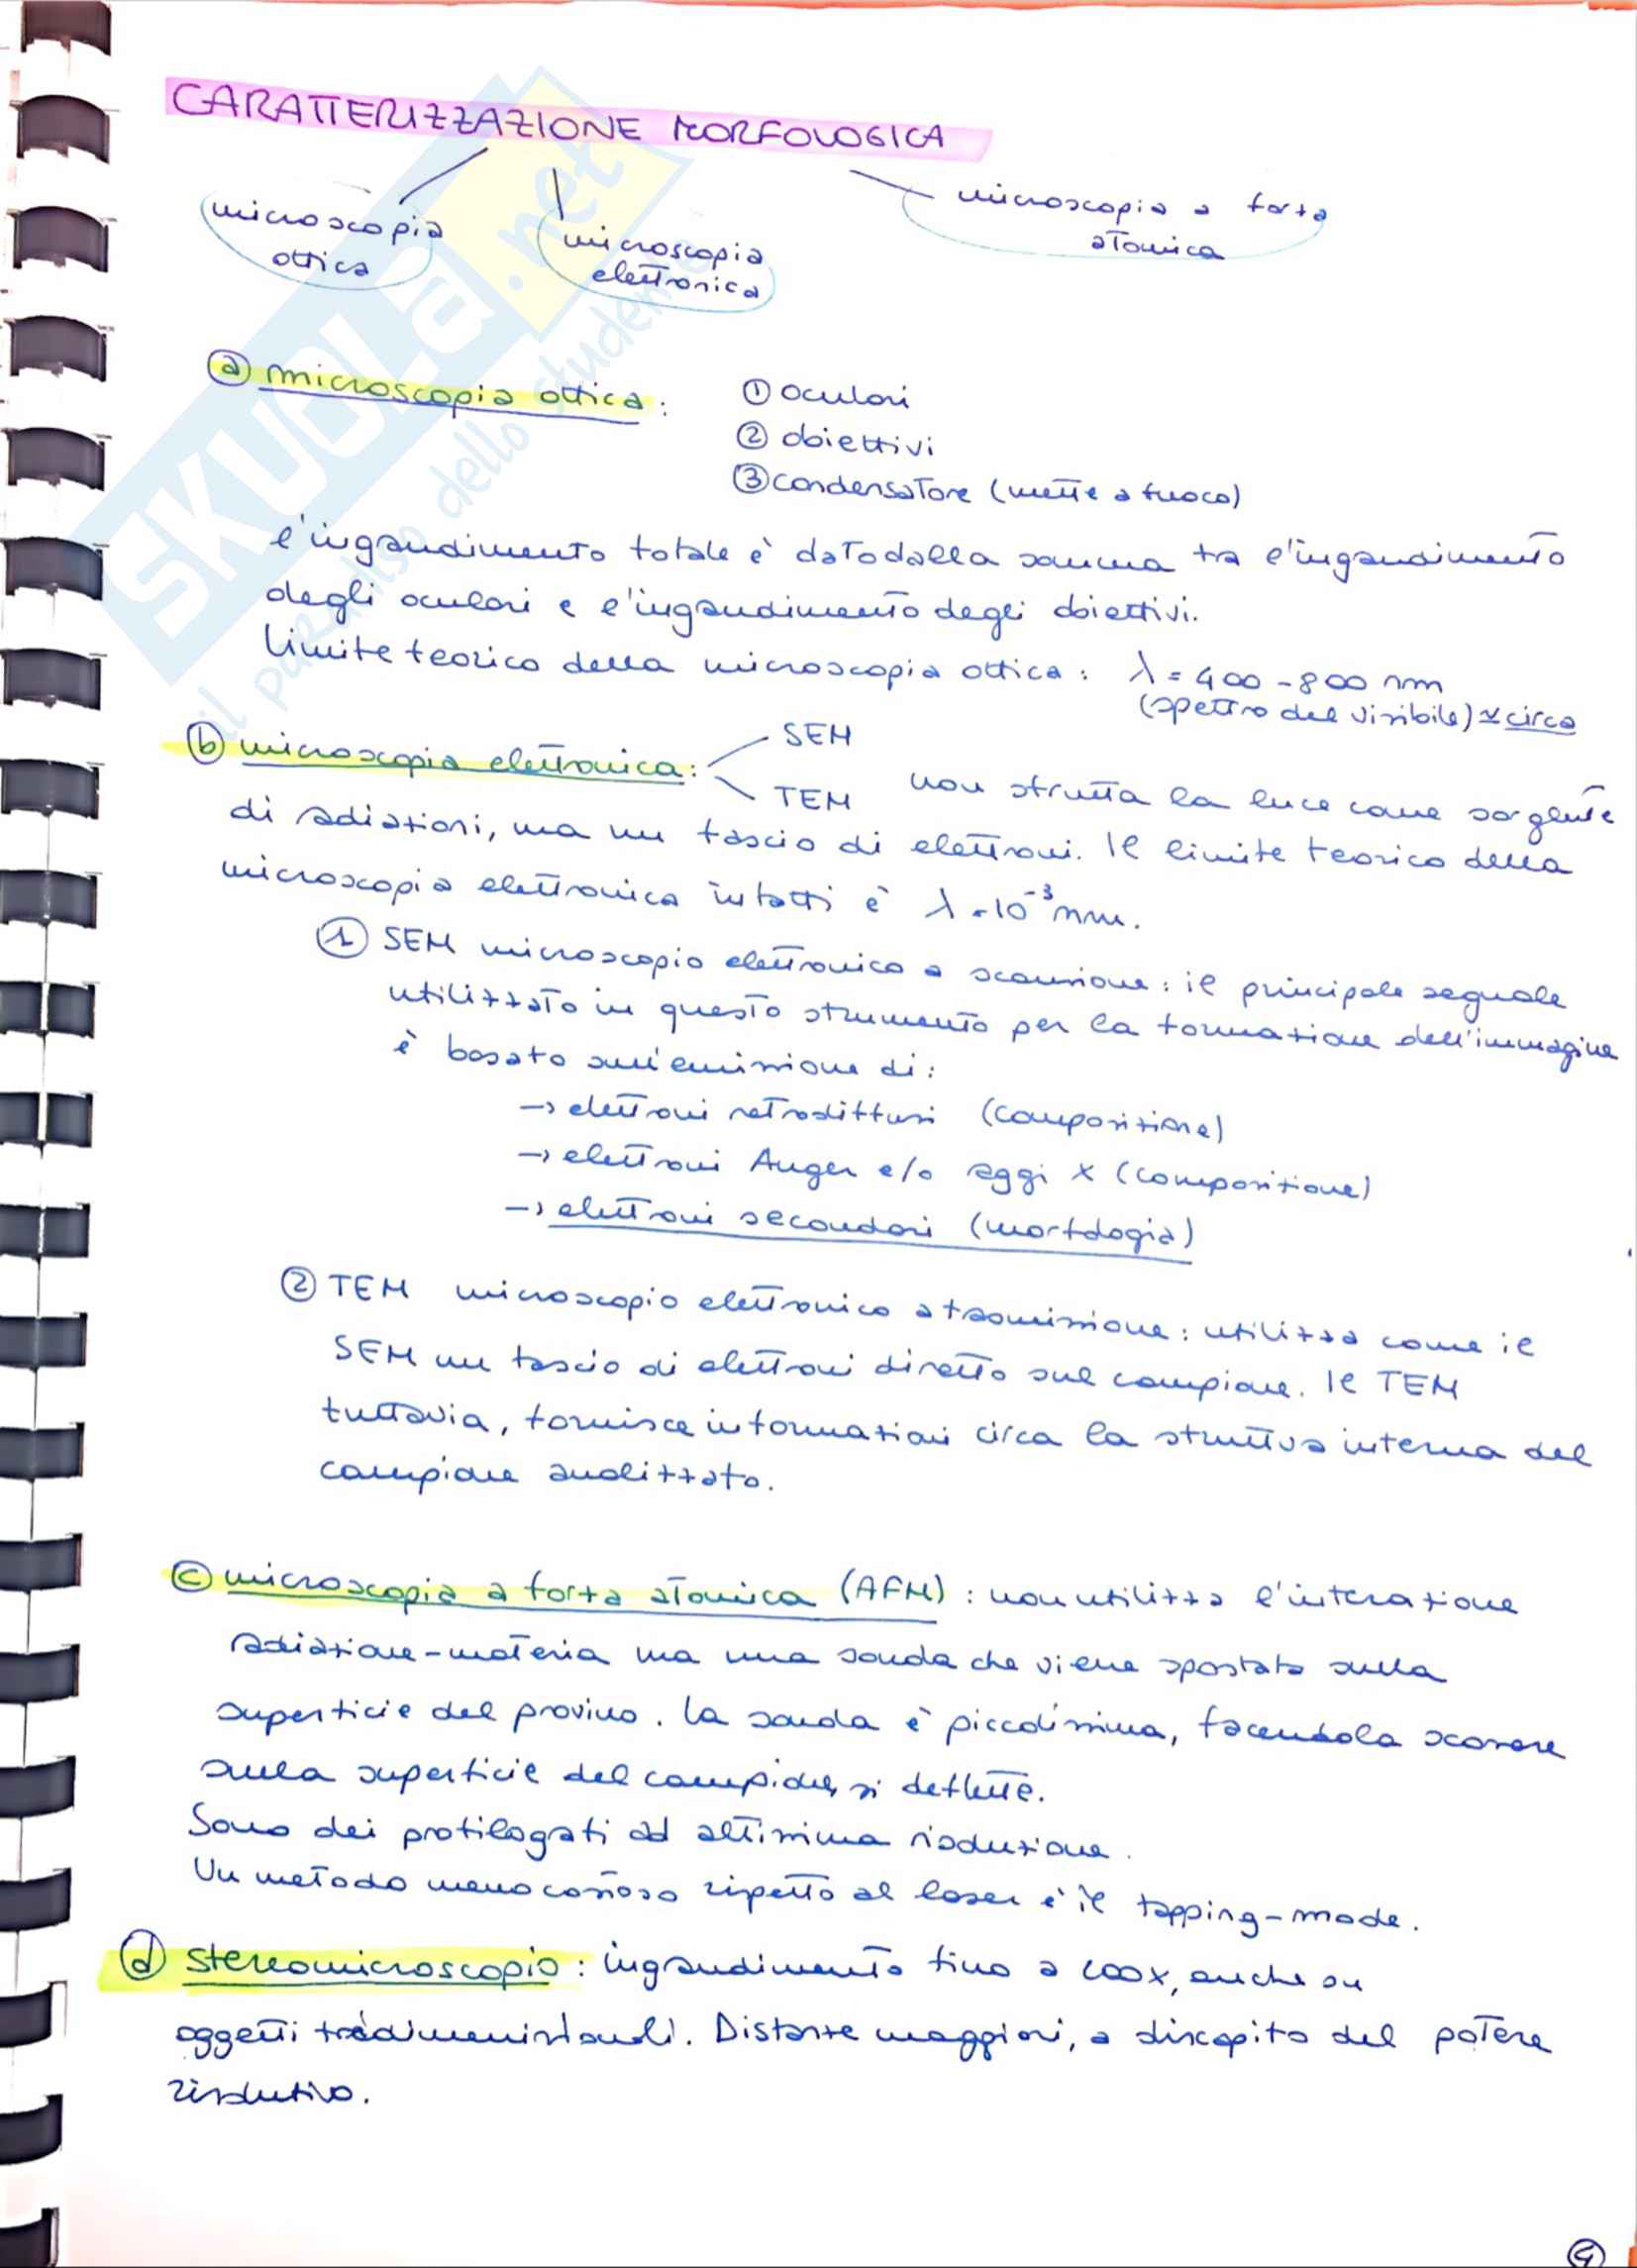 CARATTERIZZAZIONE MORFOLOGICA
microscopia ottica
microscopia elettronica
microscopia a forza atomica
SKUOLA.net
il paradiso dello studente
ⓐ microscopia ottica:
① oculari
② obiettivi
③ condensatore (mette a fuoco)
l'ingrandimento totale è dato dalla somma tra l'ingrandimento
degli oculari e l'ingrandimento degli obiettivi.
Limite teorico della microscopia ottica: λ = 400 - 800 nm
(spettro del visibile) circa
ⓑ microscopia elettronica:
SEM
TEM
non sfrutta la luce come sorgente
di radiazioni, ma un fascio di elettroni. Il limite teorico della
microscopia elettronica infatti è λ = 10⁻³ nm.
① SEM microscopio elettronico a scansione: il principale segnale
utilizzato in questo strumento per la formazione dell'immagine
è basato sull'emissione di:
→ elettroni retrodiffusi (composizione)
→ elettroni Auger e/o raggi x (composizione)
→ elettroni secondari (morfologia)
② TEM microscopio elettronico a trasmissione: utilizza come il
SEM un fascio di elettroni diretto sul campione. Il TEM
tuttavia, fornisce informazioni circa la struttura interna del
campione analizzato.
ⓒ microscopia a forza atomica (AFM): non utilizza l'interazione
radiazione-materia ma una sonda che viene spostata sulla
superficie del provino. La sonda è piccolissima, facendola scorrere
sulla superficie del campione, si deflette.
Sono dei profilografi ad altissima risoluzione.
Un metodo meno costoso rispetto al laser è il tapping-mode.
ⓓ stereomicroscopio: ingrandimento fino a 100x, anche su
oggetti tridimensionali. Distanze maggiori, a discapito del potere
risolutivo.